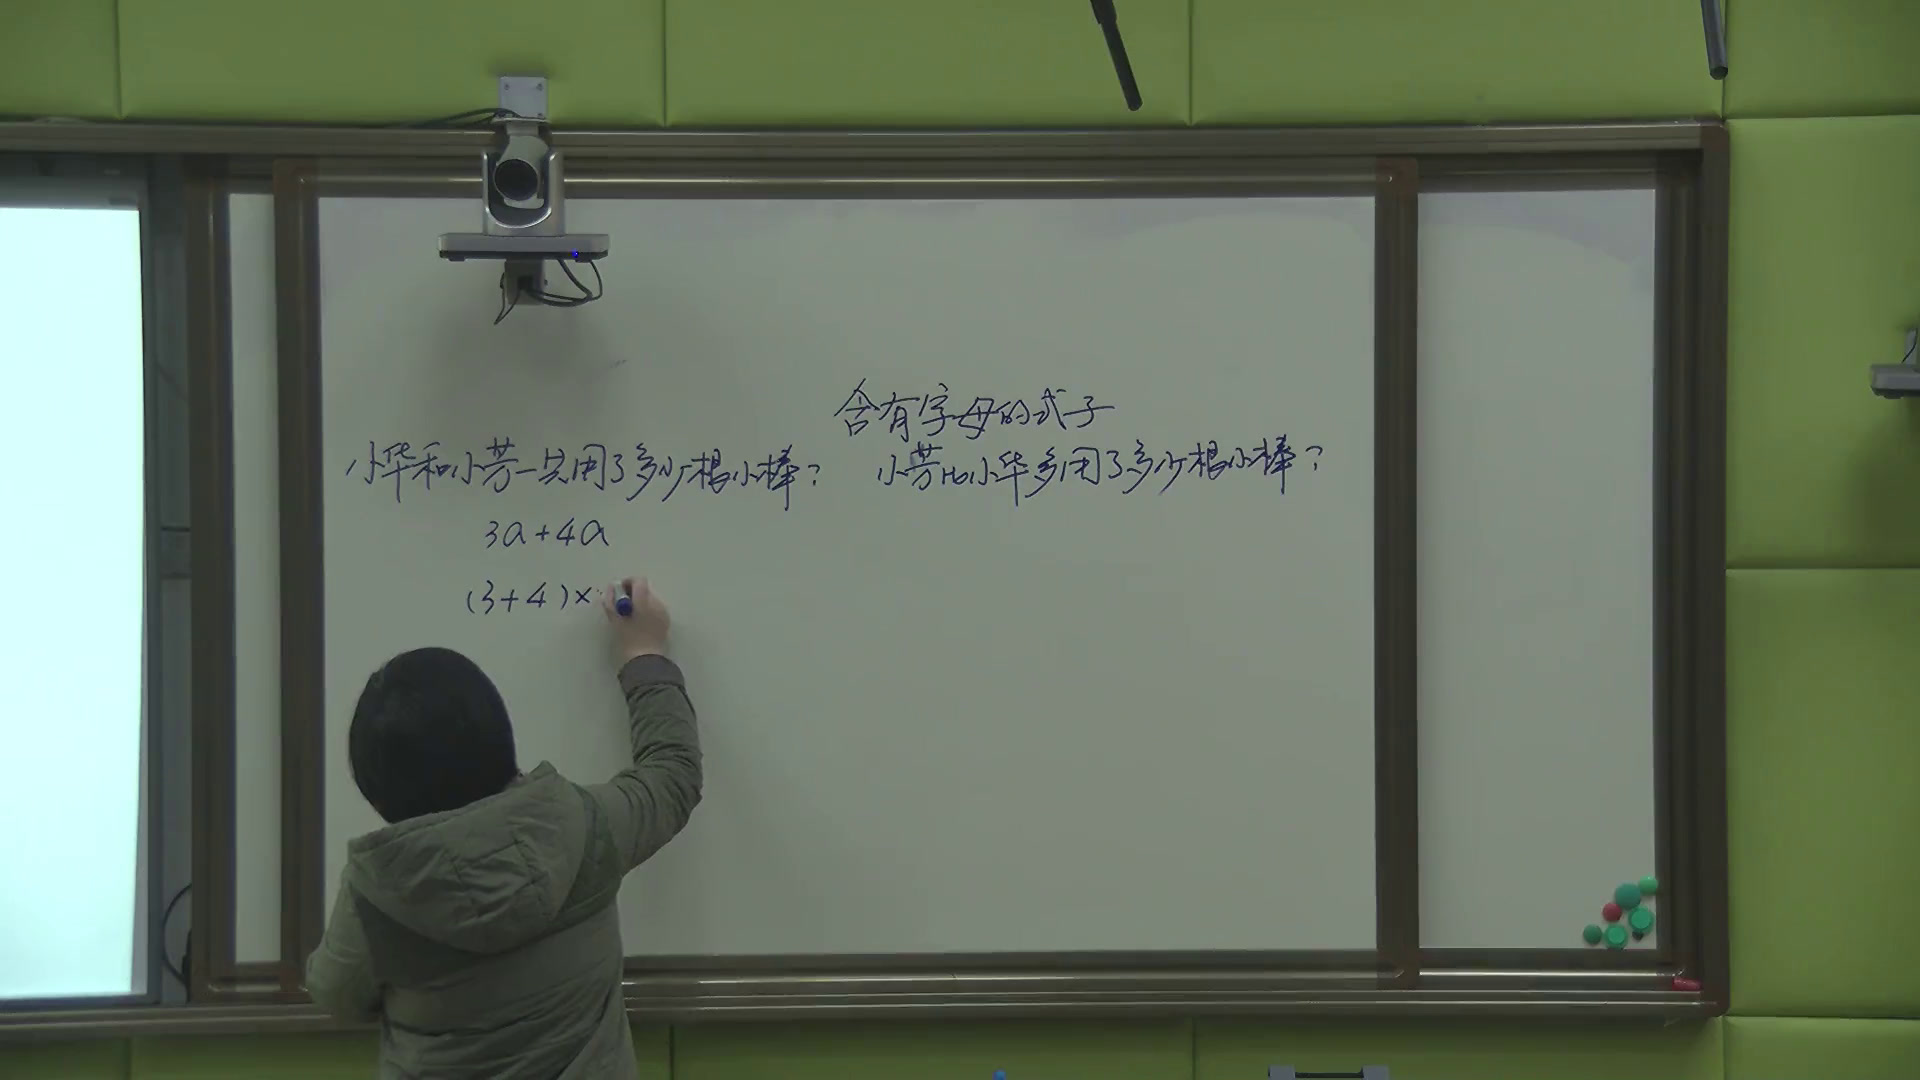 含有字母的式子
小华和小芳一共用了多少根小棒?
小芳比小华多用了多少根小棒?
3a+4a
(3+4)×